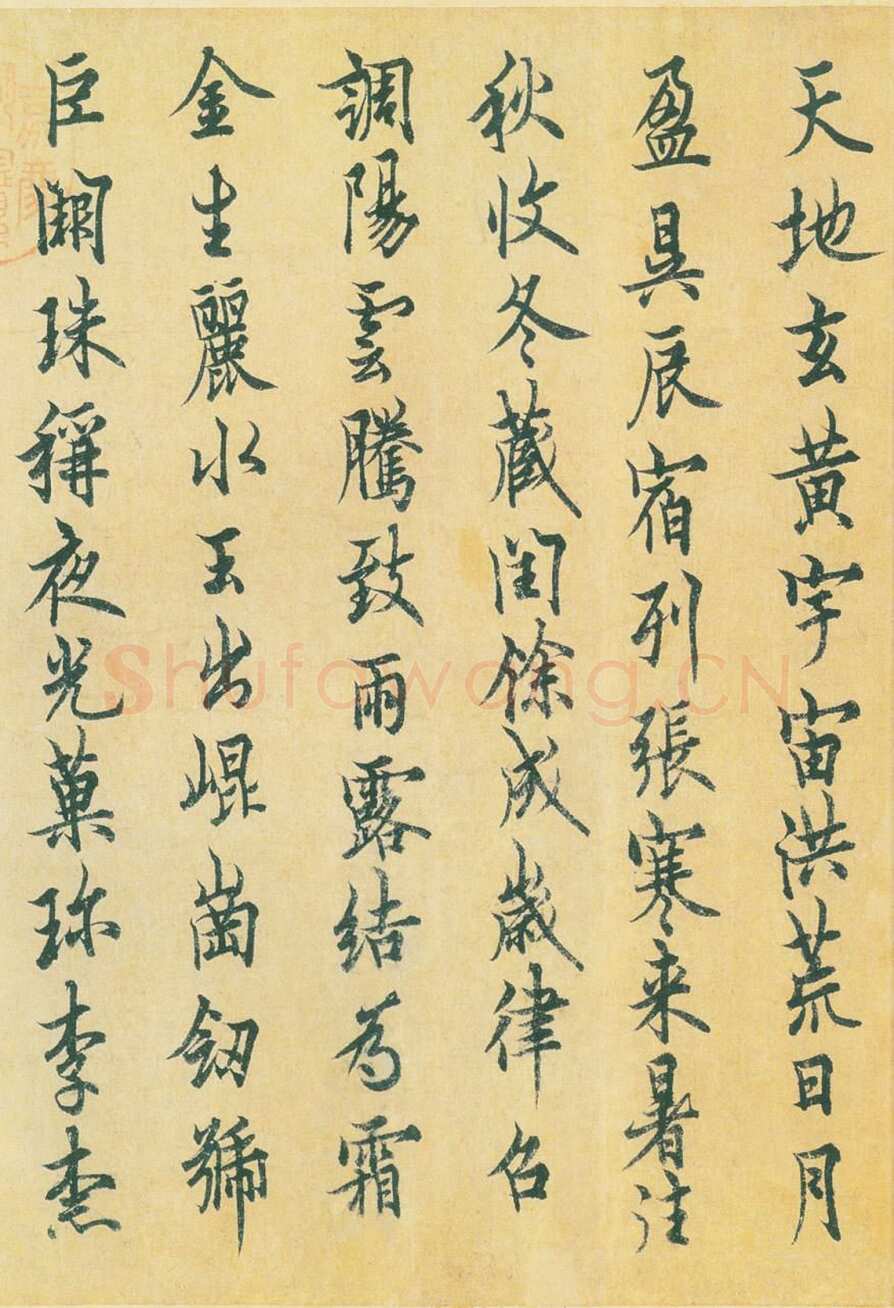 天地玄黄宇宙洪荒日月
盈昃辰宿列張寒来暑往
秋收冬藏閏餘成歲律召
調陽雲騰致雨露結為霜
金生麗水玉出崐崗劒號
巨闕珠稱夜光菓珎李柰
Shufawang.CN